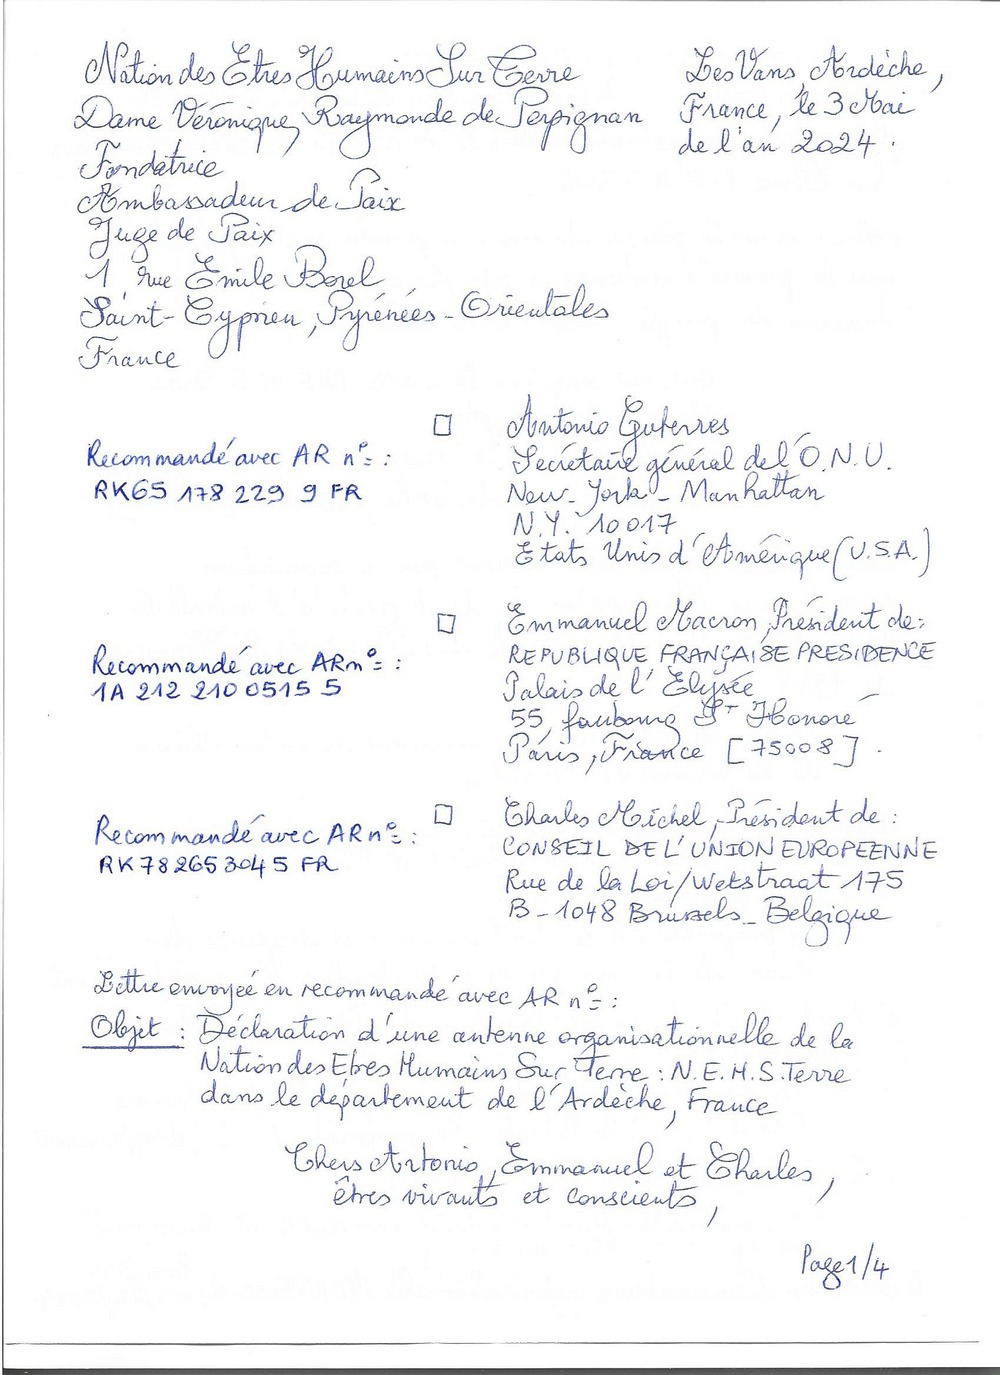 Nation des Etres Humains Sur Terre
Dame Véronique, Raymonde de Perpignan
Fondatrice
Ambassadeur de Paix
Juge de Paix
1, rue Emile Borel
Saint-Cyprien, Pyrénées-Orientales
France
Les Vans, Ardèche,
France, le 3 Mai
de l'an 2024.
Recommandé avec AR n° :
RK65 178 229 9 FR
Antonio Guterres
Secrétaire général de l'O.N.U.
New-York - Manhattan
N.Y. 10017
Etats Unis d'Amérique (U.S.A.)
Recommandé avec AR n° :
1A 212 210 0515 5
Emmanuel Macron, Président de :
REPUBLIQUE FRANÇAISE PRESIDENCE
Palais de l'Elysée
55, faubourg St Honoré
Paris, France [75008].
Recommandé avec AR n° :
RK 78 265 304 5 FR
Charles Michel, Président de :
CONSEIL DE L'UNION EUROPEENNE
Rue de la Loi/Wetstraat 175
B-1048 Brussels - Belgique
Lettre envoyée en recommandé avec AR n° :
Objet : Déclaration d'une antenne organisationnelle de la
Nation des Etres Humains Sur Terre : N.E.H.S.Terre
dans le département de l'Ardèche, France
Chers Antonio, Emmanuel et Charles,
êtres vivants et conscients,
Page 1/4